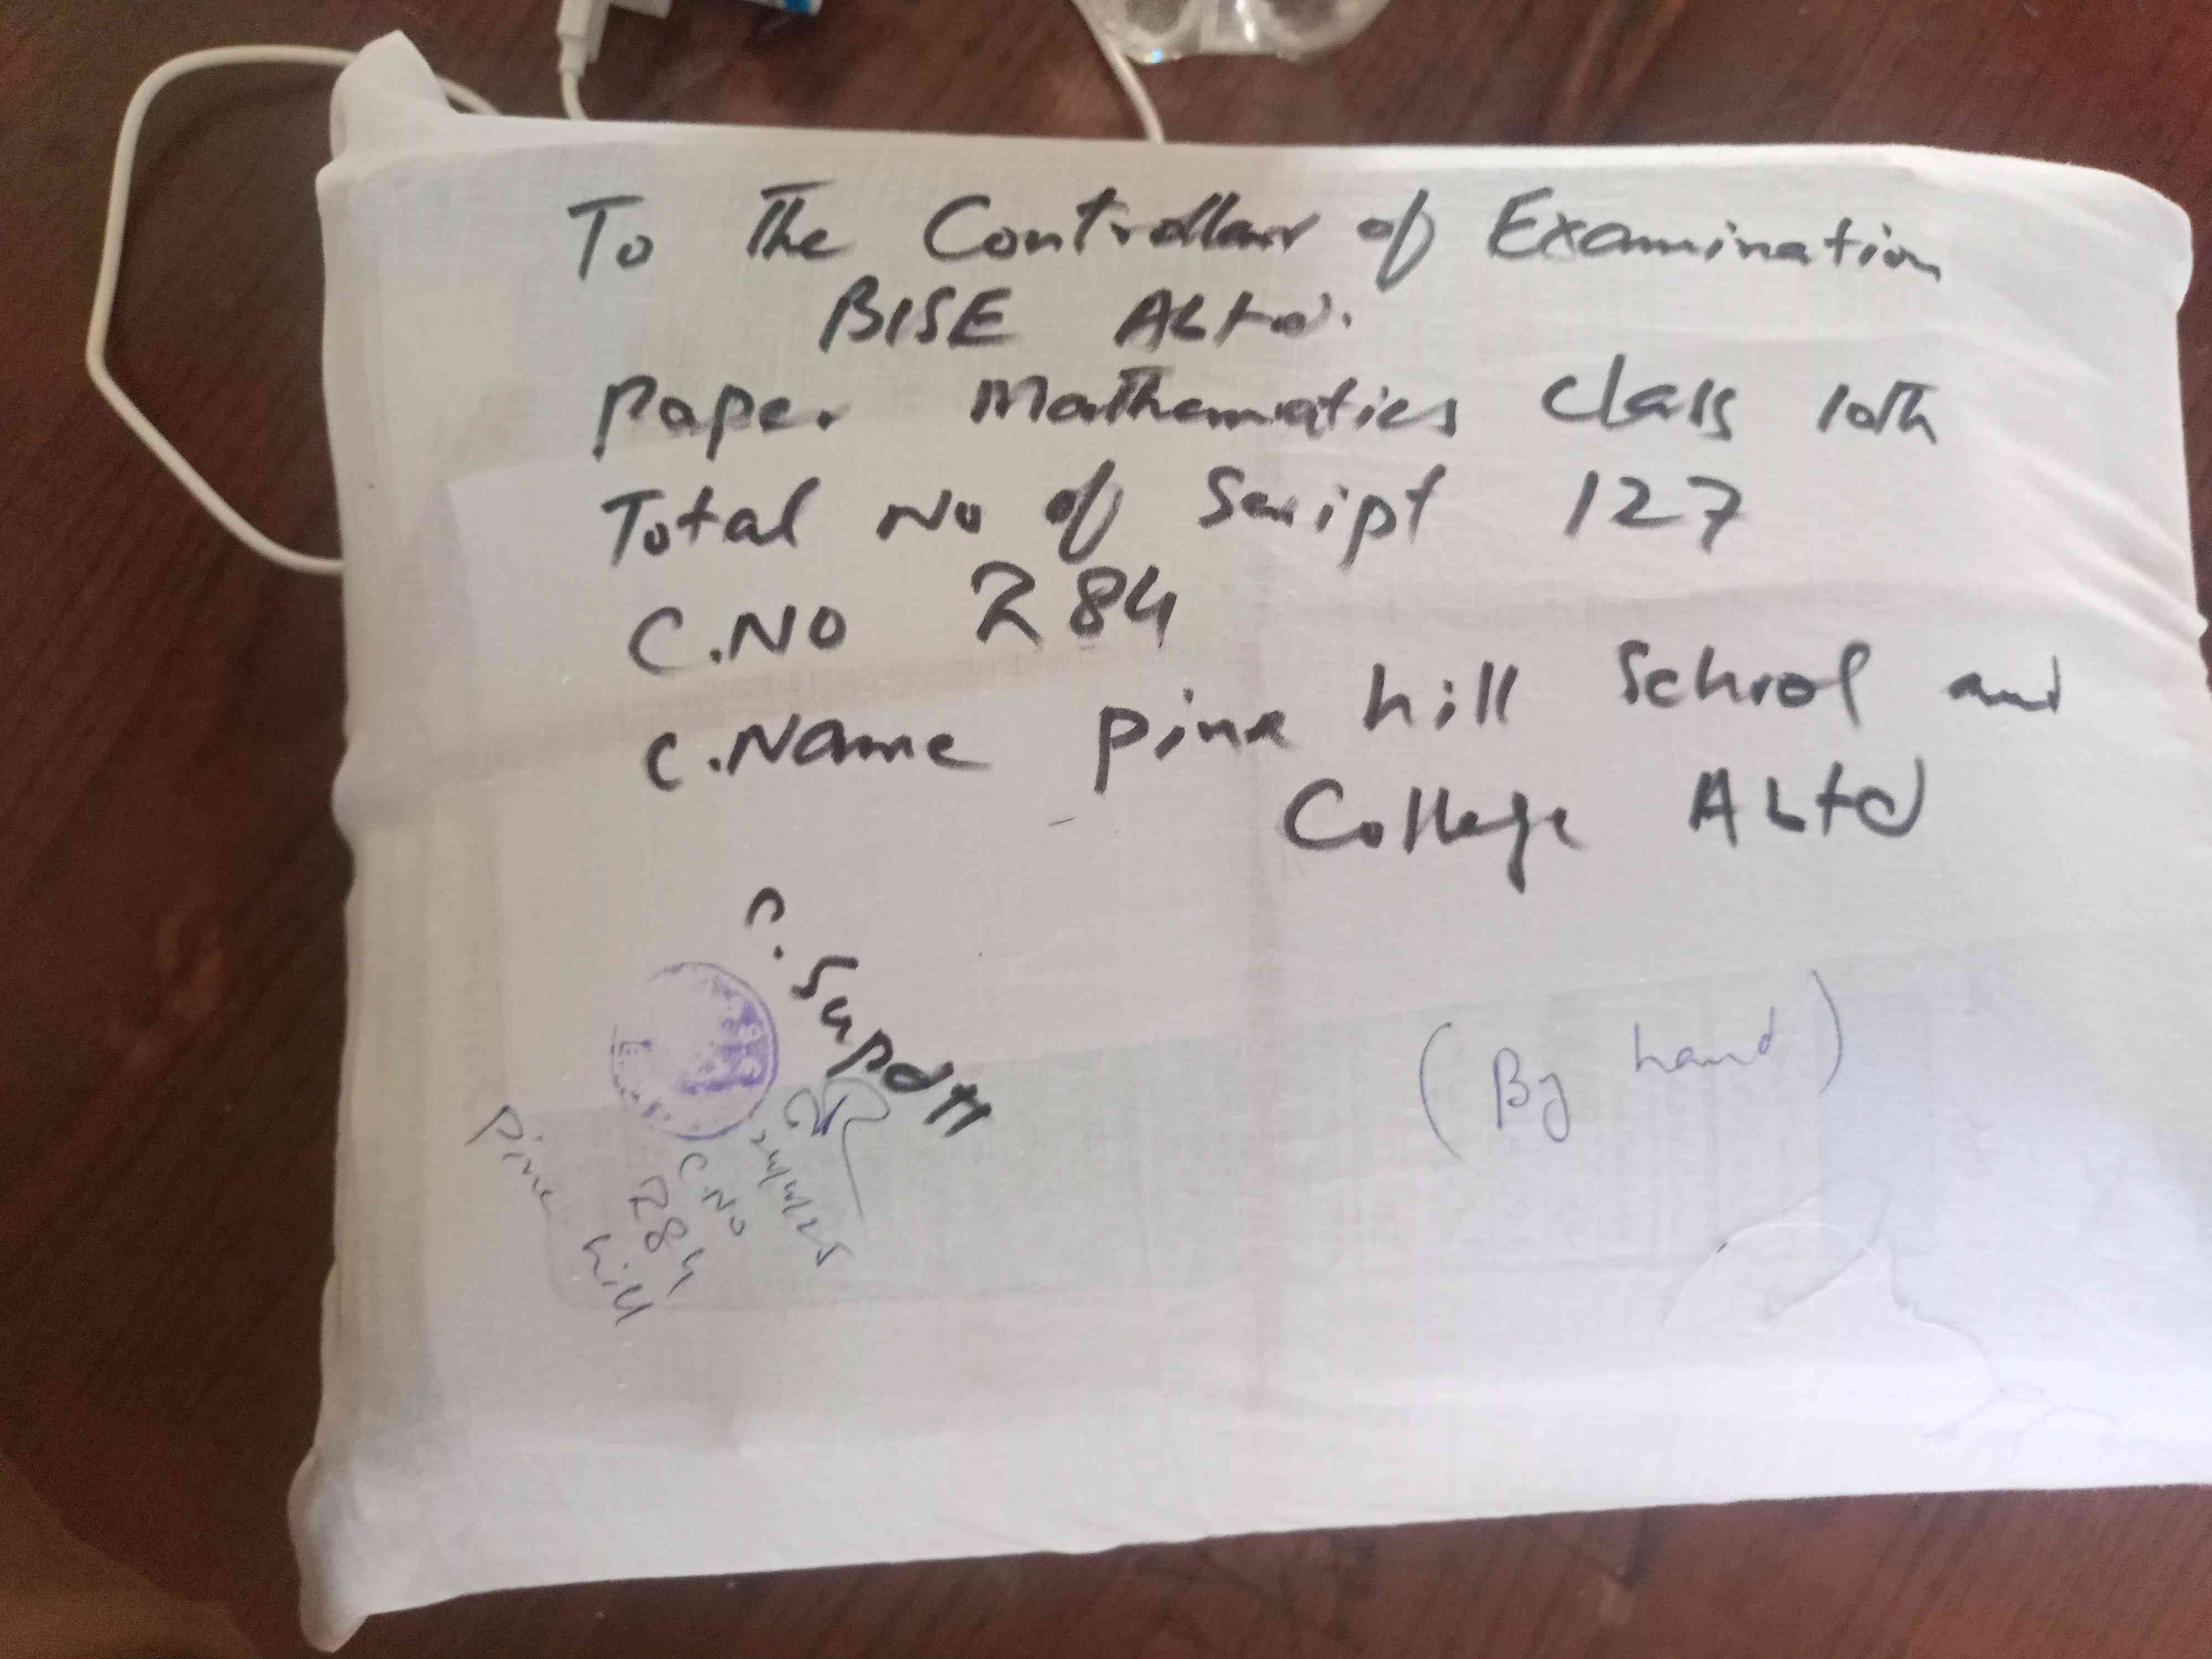 To The Controller of Examination
BISE Abtd.
Paper Mathematics Class 10th
Total No of Script 127
C.NO 284
C.Name Pine hill School and
College Abtd
C. Supdtt
(By hand)
C.No
284
Pine hill